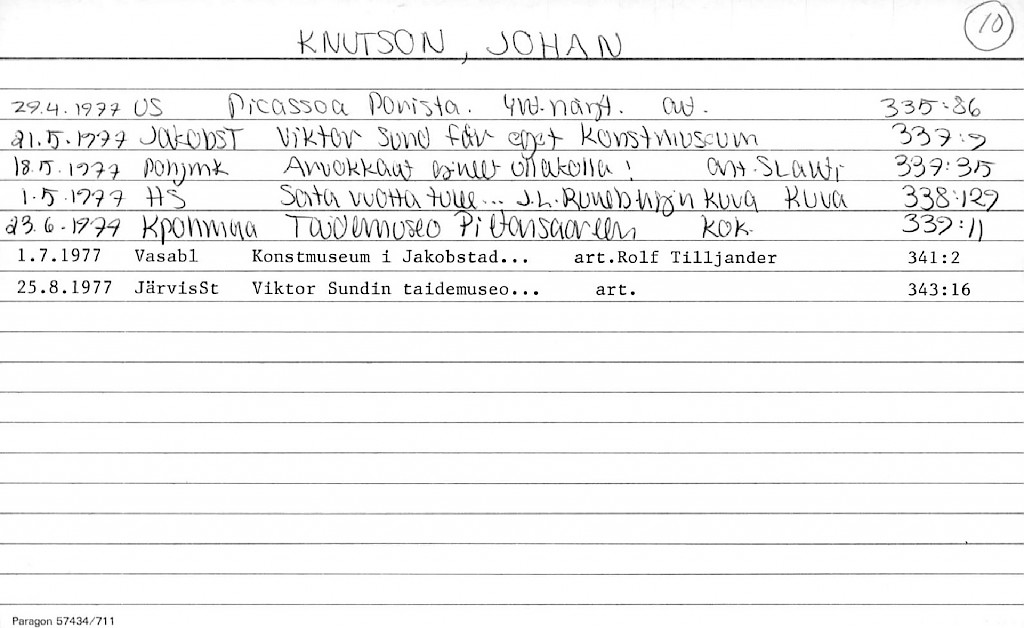 10
KNUTSON, JOHAN
29.4.1977 US Picassoa Porista. art. 335:86
21.5.1977 JakobST Viktor Sund får eget konstmuseum 339:9
18.5.1977 Pohjmk Arvokkaat esineet ullakolla! art. SLauti 339:315
1.5.1977 HS Sata vuotta tulee... J.L. Runebergin kuva Kuva 338:129
23.6.1977 Kpohnmaa Taidemuseo Pietarsaareen kok. 339:11
1.7.1977 Vasabl Konstmuseum i Jakobstad... art.Rolf Tilljander 341:2
25.8.1977 JärvisSt Viktor Sundin taidemuseo... art. 343:16
Paragon 57434/711